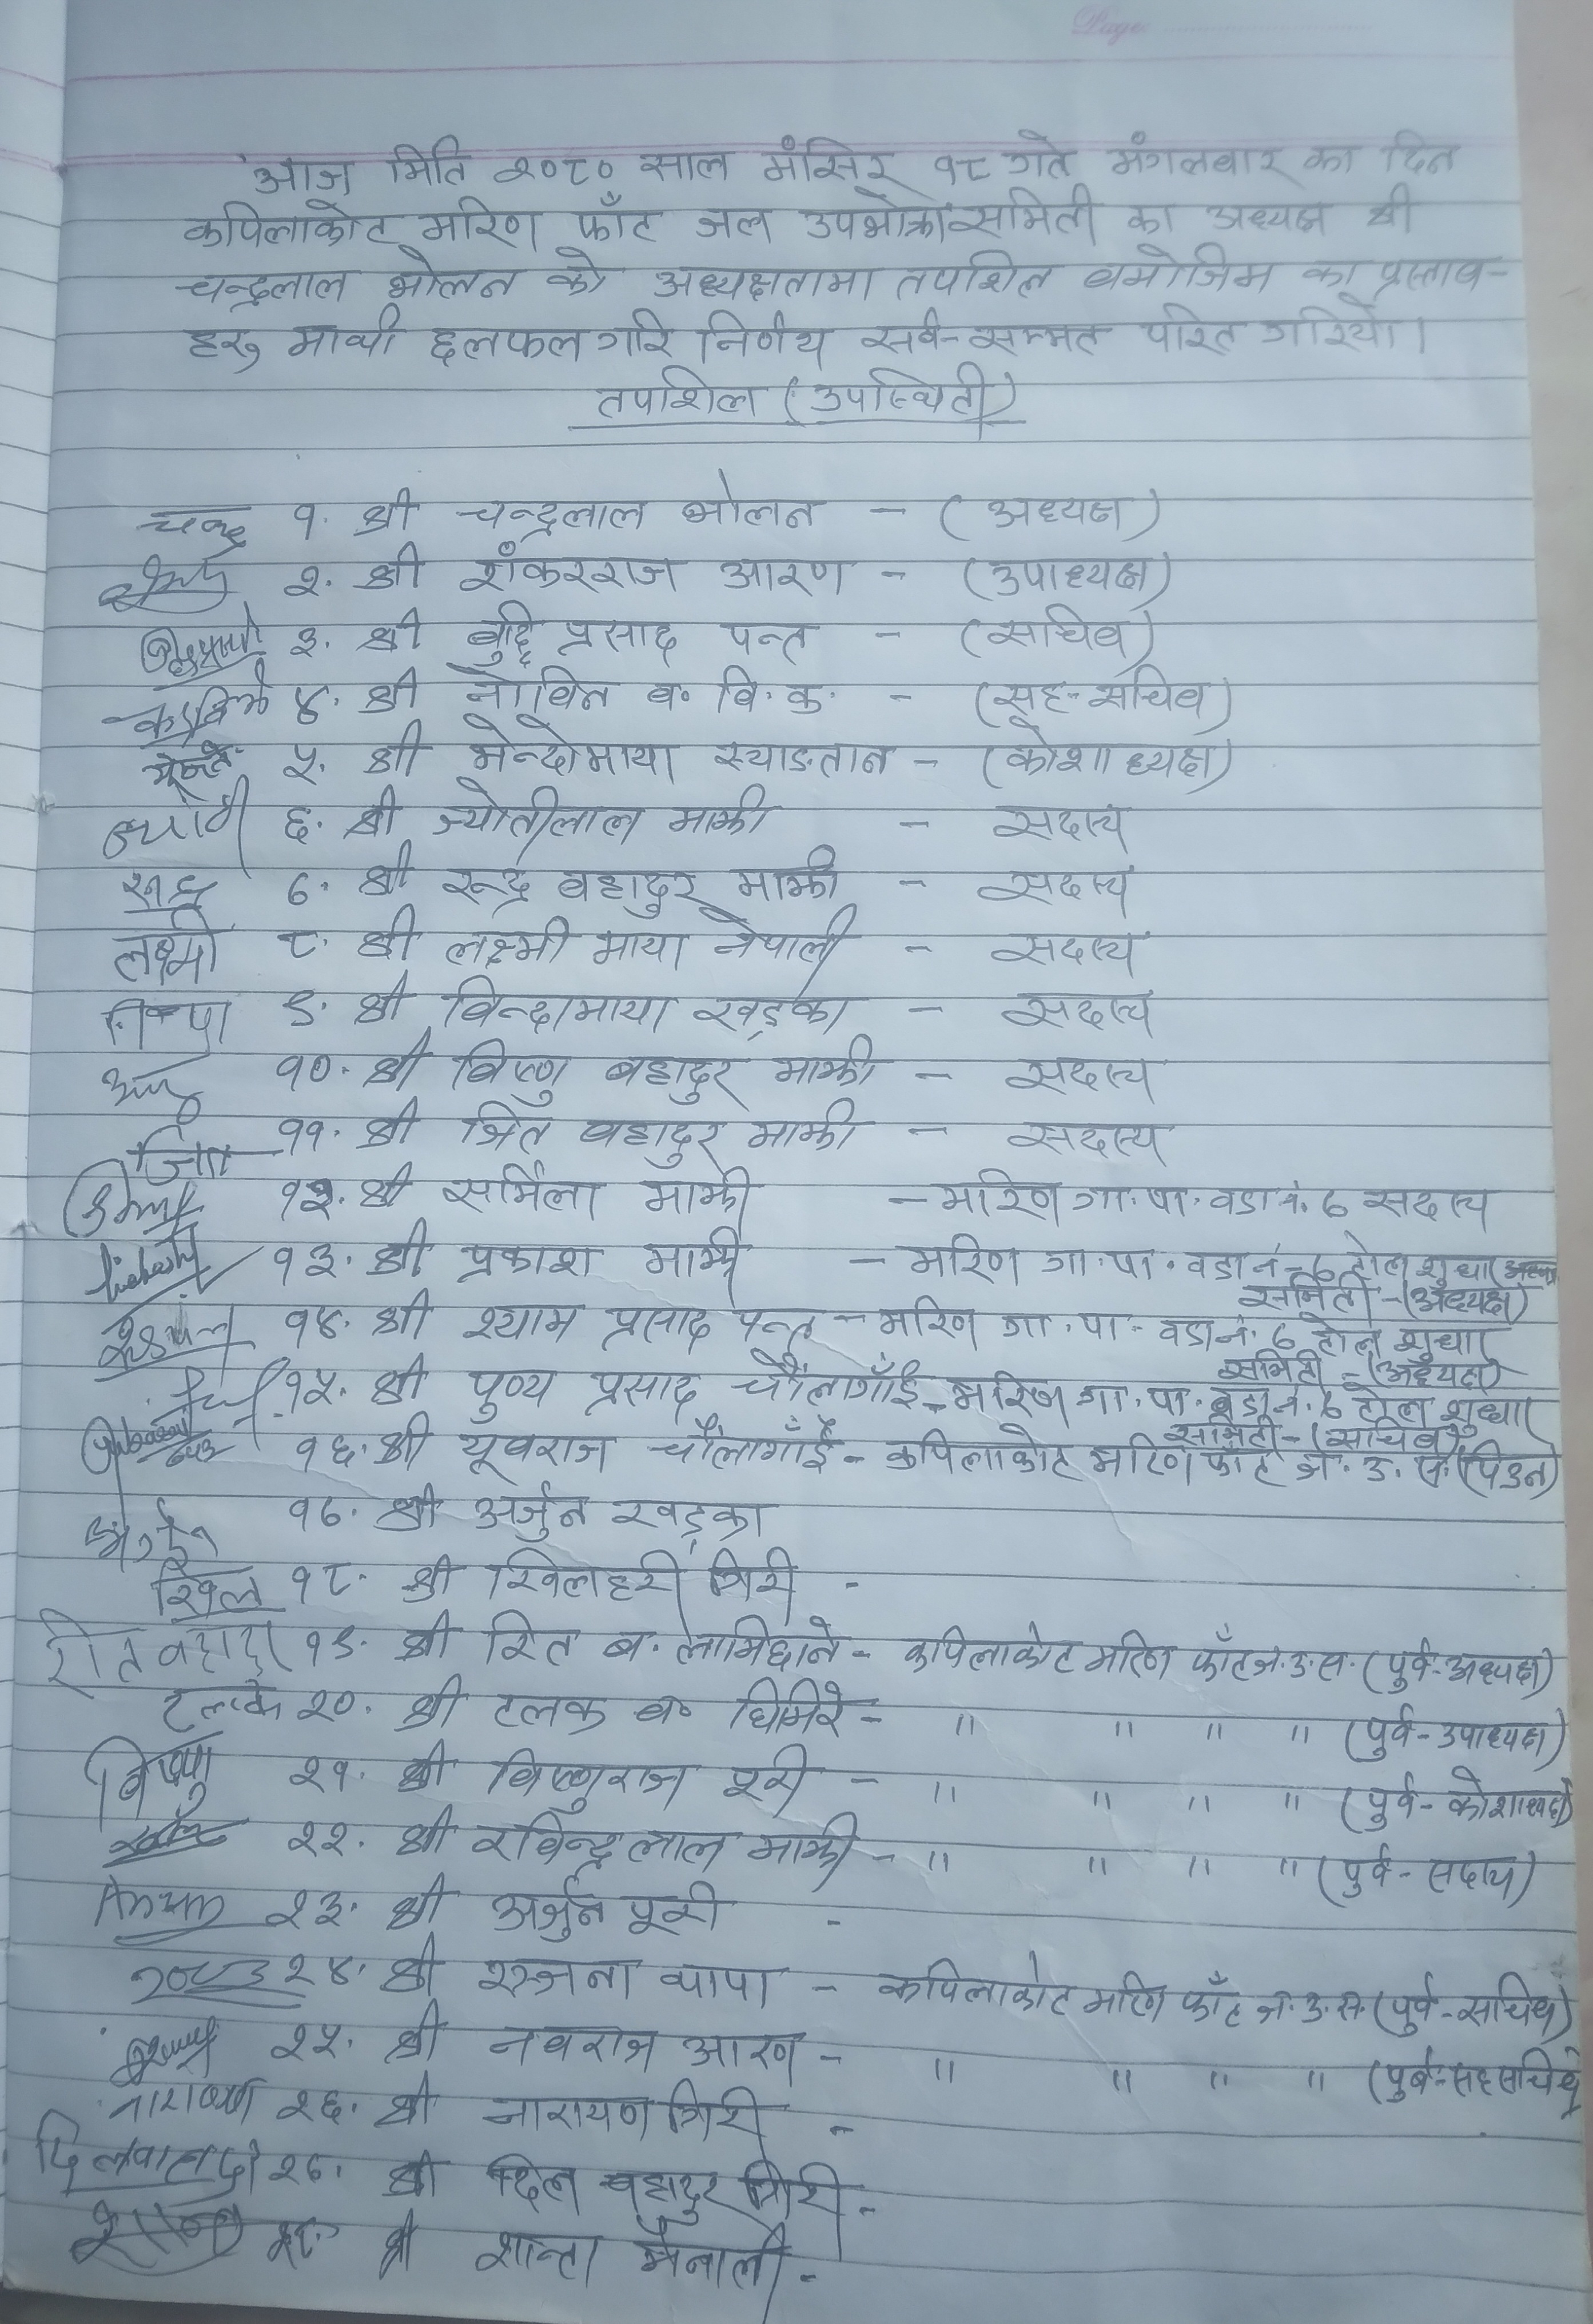 Page
आज मिति २०८० साल मंसिर १८ गते मंगलबार का दिन
कपिलाकोट मरिण फाँट जल उपभोक्ता समिती का अध्यक्ष श्री
चन्द्रलाल भोलन को अध्यक्षतामा तपशिल बमोजिम का प्रस्ताव-
हरु माथी छलफल गरि निर्णय सर्व-सम्मत पारित गरियो।
तपशिल (उपस्थिती)
चन्द्र १. श्री चन्द्रलाल भोलन - (अध्यक्ष)
२. श्री शंकरराज आरण - (उपाध्यक्ष)
३. श्री बुद्दि प्रसाद पन्त - (सचिव)
४. श्री नोविन ब॰ वि. क. - (सह-सचिव)
५. श्री मेन्दोमाया स्याङतान - (कोशाध्यक्ष)
ज्योती ६. श्री ज्योतीलाल माझी - सदस्य
रुद्र ७. श्री रुद्र बहादुर माझी - सदस्य
लक्ष्मी ८. श्री लक्ष्मी माया नेपाली - सदस्य
९. श्री विन्दामाया खड्का - सदस्य
१०. श्री विष्णु बहादुर माझी - सदस्य
जित ११. श्री जित बहादुर माझी - सदस्य
१२. श्री सर्मिला माझी - मरिण गा.पा. वडा नं. ७ सदस्य
१३. श्री प्रकाश माझी - मरिण गा.पा. वडा नं - ७ टोल सुधार
समिती - (अध्यक्ष)
१४. श्री श्याम प्रसाद पन्त - मरिण गा.पा. वडा नं. ७ टोल सुधार
समिती - (अध्यक्ष)
१५. श्री पुण्य प्रसाद चौंलागाँई - मरिण गा.पा. वडा नं. ७ टोल सुधार
समिती - (सचिव)
१६. श्री यूवराज चौंलागाँई - कपिलाकोट मरिण फाँट ज. उ. स. (पिउन)
१७. श्री अर्जुन खड्का
खिल १८. श्री खिलहरी गिरी -
रीत बहादुर १९. श्री रित ब. लामिछाने - कपिलाकोट मरिण फाँट ज. उ. स. (पुर्व-अध्यक्ष)
टलक २०. श्री टलक ब॰ घिमिरे - " " " " (पुर्व - उपाध्यक्ष)
विष्णु २१. श्री विष्णुराज पूरी - " " " " (पुर्व - कोशाध्यक्ष)
२२. श्री रविन्द्रलाल माझी - " " " " (पुर्व - सदस्य)
२३. श्री अर्जुन पूरी -
२४. श्री रञ्जना थापा - कपिलाकोट मरिण फाँट ज. उ. स. (पुर्व-सचिव)
२५. श्री नवराज आरण - " " " " (पुर्व-सहसचिव)
नारायण २६. श्री नारायण गिरी -
दिलबहादुर २७. श्री दिल बहादुर गिरी -
२८. श्री शान्ता मैनाली -